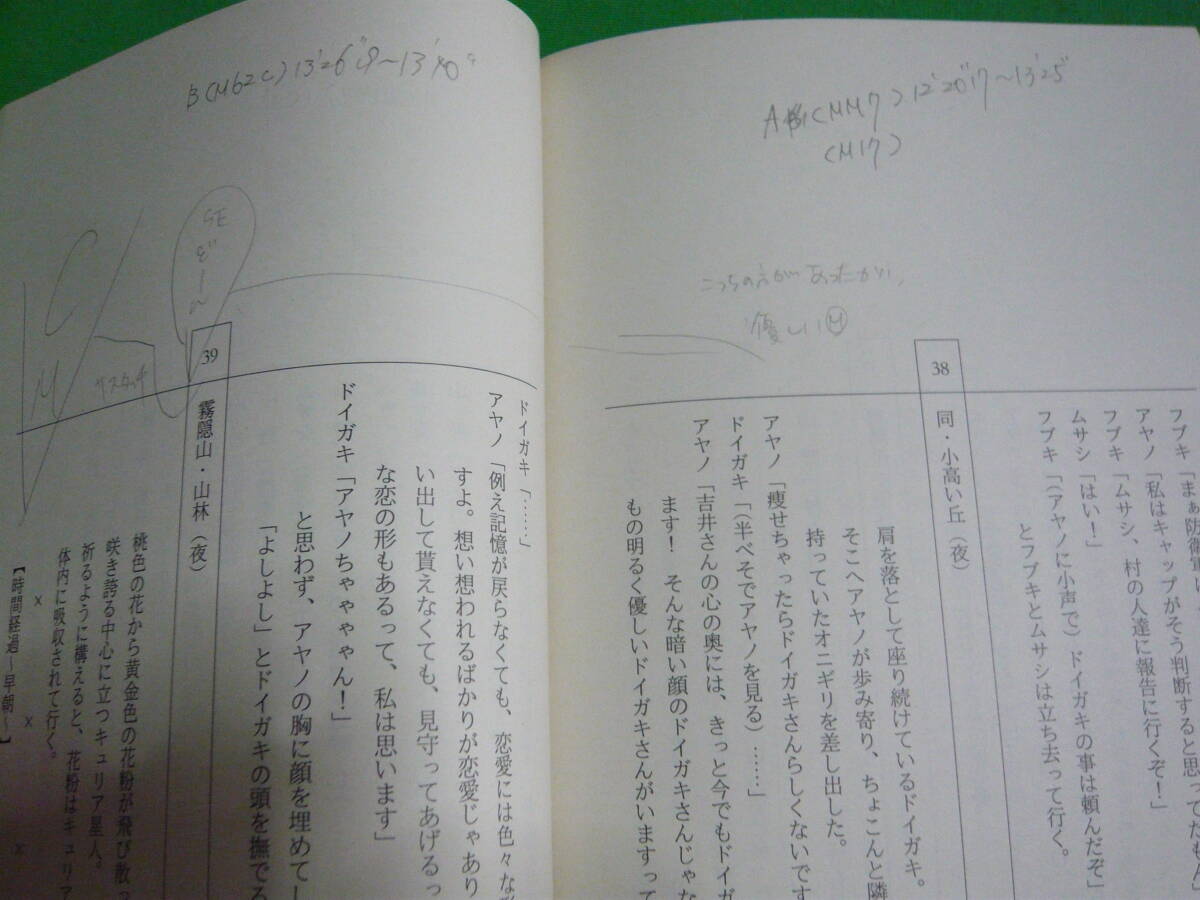 A (MM7) 12'20"17〜13'25"
(M17)
こっちの方があったかい、
優しいⓂ
フブキ「まぁ防衛軍
アヤノ「私はキャップがそう判断すると思ってたもん」
フブキ「ムサシ、村の人達に報告に行くぞ!」
ムサシ「はい!」
フブキ「(アヤノに小声で)ドイガキの事は頼んだぞ」
とフブキとムサシは立ち去って行く。
38
同・小高い丘(夜)
肩を落として座り続けているドイガキ。
そこへアヤノが歩み寄り、ちょこんと隣
持っていたオニギリを差し出した。
アヤノ「痩せちゃったらドイガキさんらしくないです
ドイガキ「(半べそでアヤノを見る)……」
アヤノ「吉井さんの心の奥には、きっと今でもドイガ
ます! そんな暗い顔のドイガキさんじゃな
もの明るく優しいドイガキさんがいますって
B (M62C) 13'26"9〜13'40"
SE
ど〜ん
CM
ドイガキ「……」
アヤノ「例え記憶が戻らなくても、恋愛には色々な形
すよ。想い想われるばかりが恋愛じゃあり
い出して貰えなくても、見守ってあげるっ
な恋の形もあるって、私は思います」
ドイガキ「アヤノちゃゃゃゃん!」
と思わず、アヤノの胸に顔を埋めてし
「よしよし」とドイガキの頭を撫でる
39
霧隠山・山林(夜)
桃色の花から黄金色の花粉が飛び散っ
咲き誇る中心に立つキュリア星人。
祈るように構えると、花粉はキュリア
体内に吸収されて行く。
× × ×
【時間経過〜早朝〜】